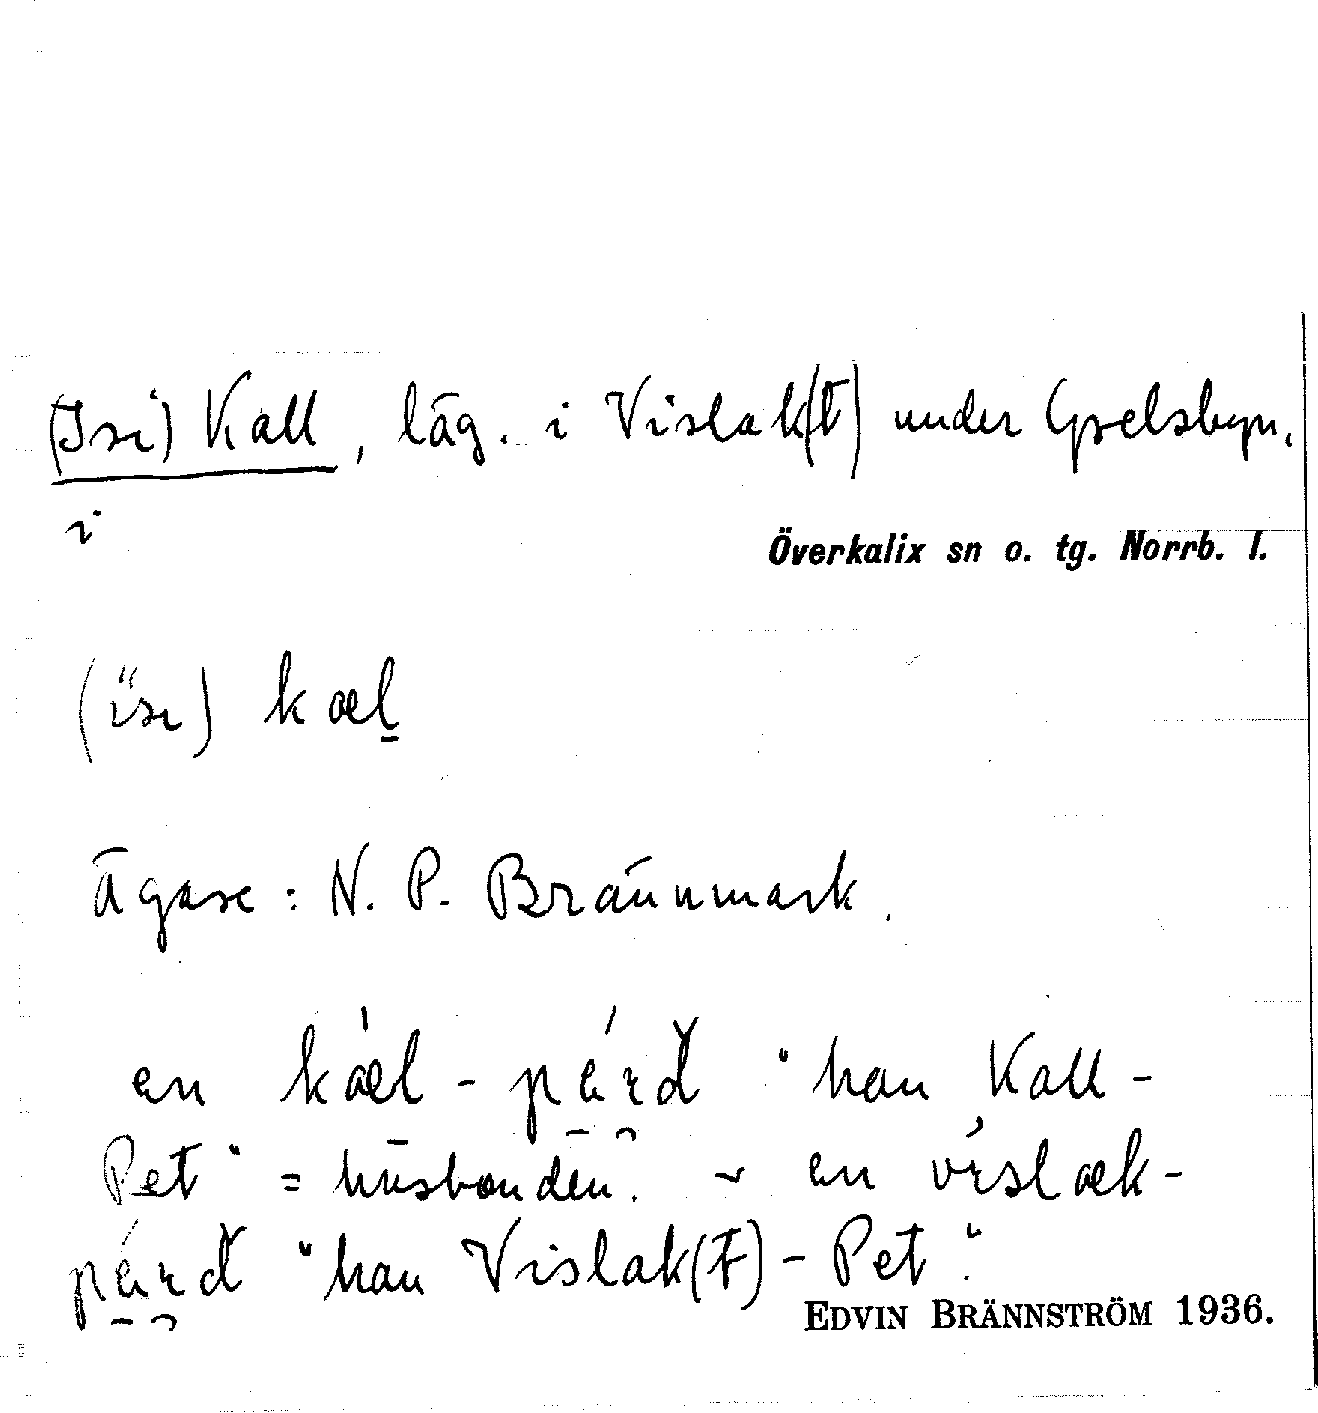 (Isi) Kall, läg. i Vislak(t) under Gyelsbyn,
i
Överkalix sn o. tg. Norrb. l.
(ïsı) kæl̠
Ägare: N. P. Brännmark.
en kæ̀l - pérd "han Kall-
Pet" = husbonden. ~ en vìslæk-
pérd "han Vislak(t)-Pet".
EDVIN BRÄNNSTRÖM 1936.